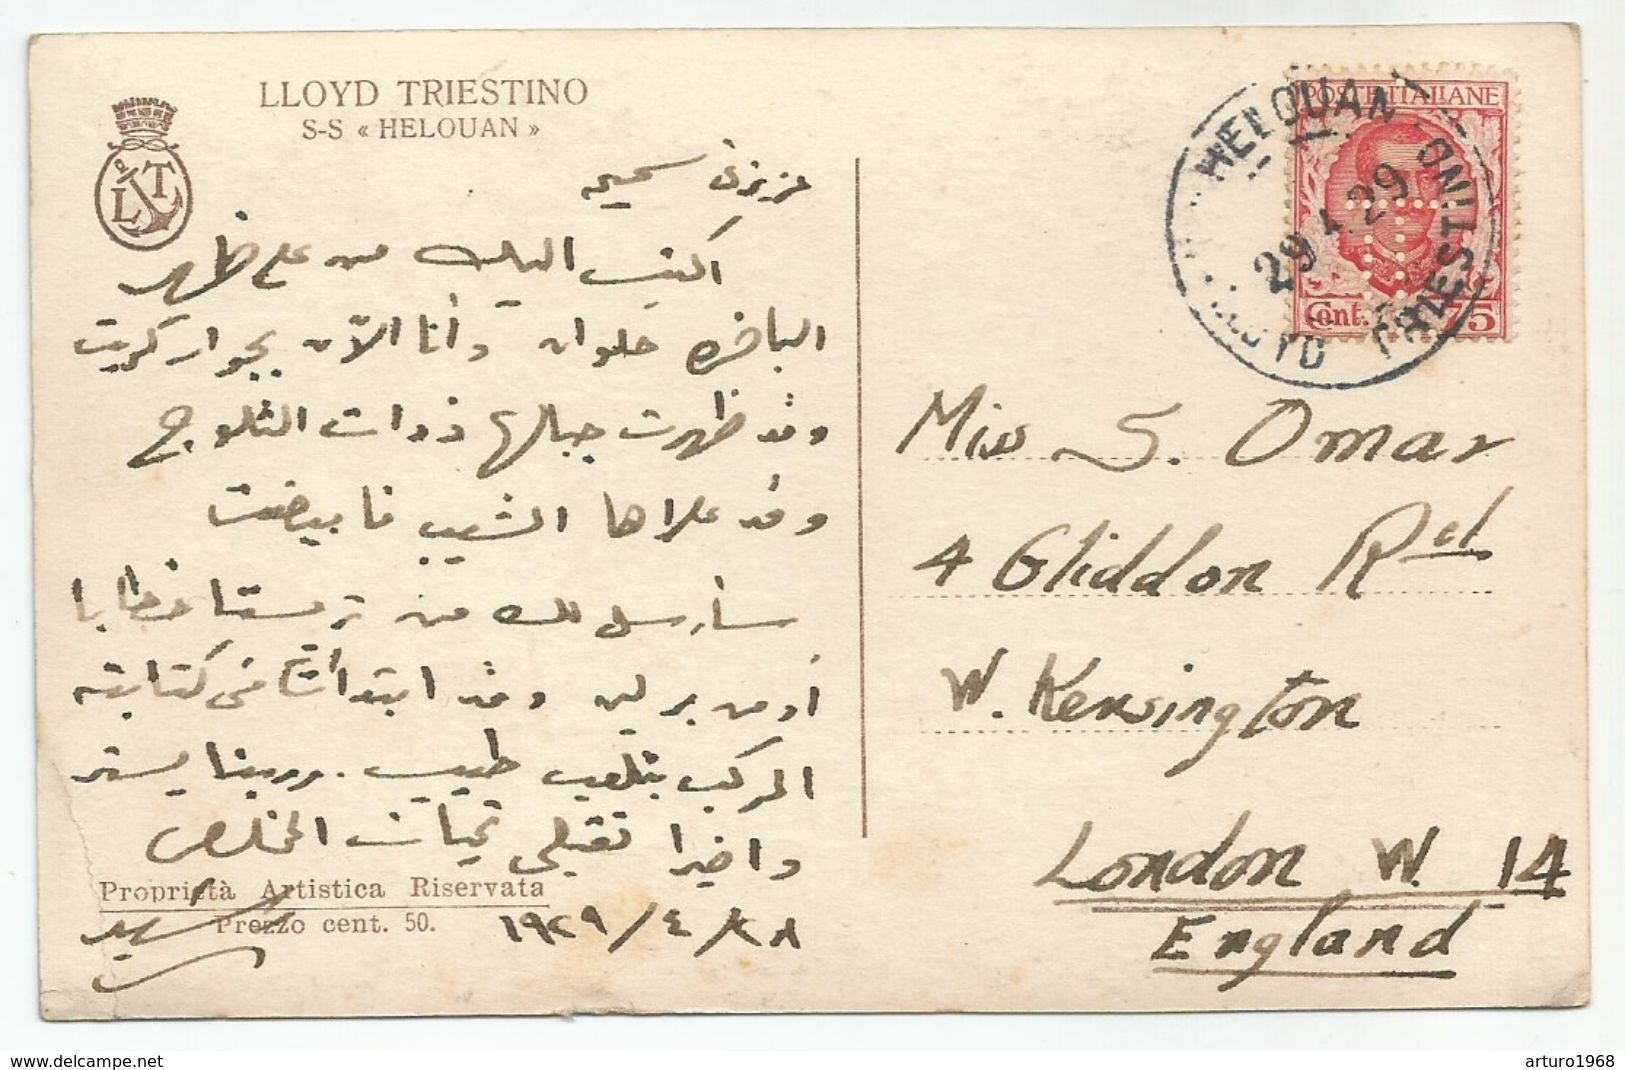 LLOYD TRIESTINO
S-S « HELOUAN »
L T
عزيزتى سميحه
اكتب اليك من على ظهر
الباخرة حلوان وأنا الآن بجوار كريت
وقد ظهرت جبالها ذوات الثلوج
وقد علاها الشيب فابيضت
سأرسل لك من ترستا خطابا
أو من برلين وقد ابتدأنا فى كتابته
المركب بتلعب طيب. وربنا يستر
واخيرا تقبلى تحيات المخلص
٢٨/٤/١٩٢٩
Proprietà Artistica Riservata
Prezzo cent. 50.
POSTE ITALIANE
Cent. 75
HELOUAN
29.4.29
LLOYD TRIESTINO
Miss S. Omar
4 Gliddon Rd
W. Kensington
London W. 14
England
www.delcampe.net
arturo1968